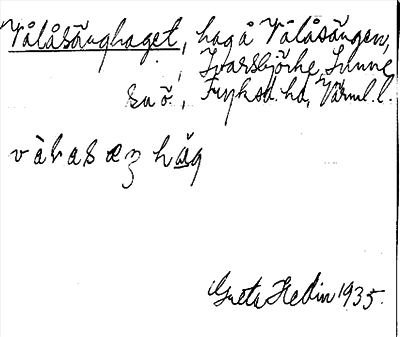 Vålåsänghaget, hag å Vålåsängen,
Ivarsbjörke, Sunne
sn ö., Fryksd. hd, Värml. l.
vålasæŋ hag
Greta Hedin 1935.